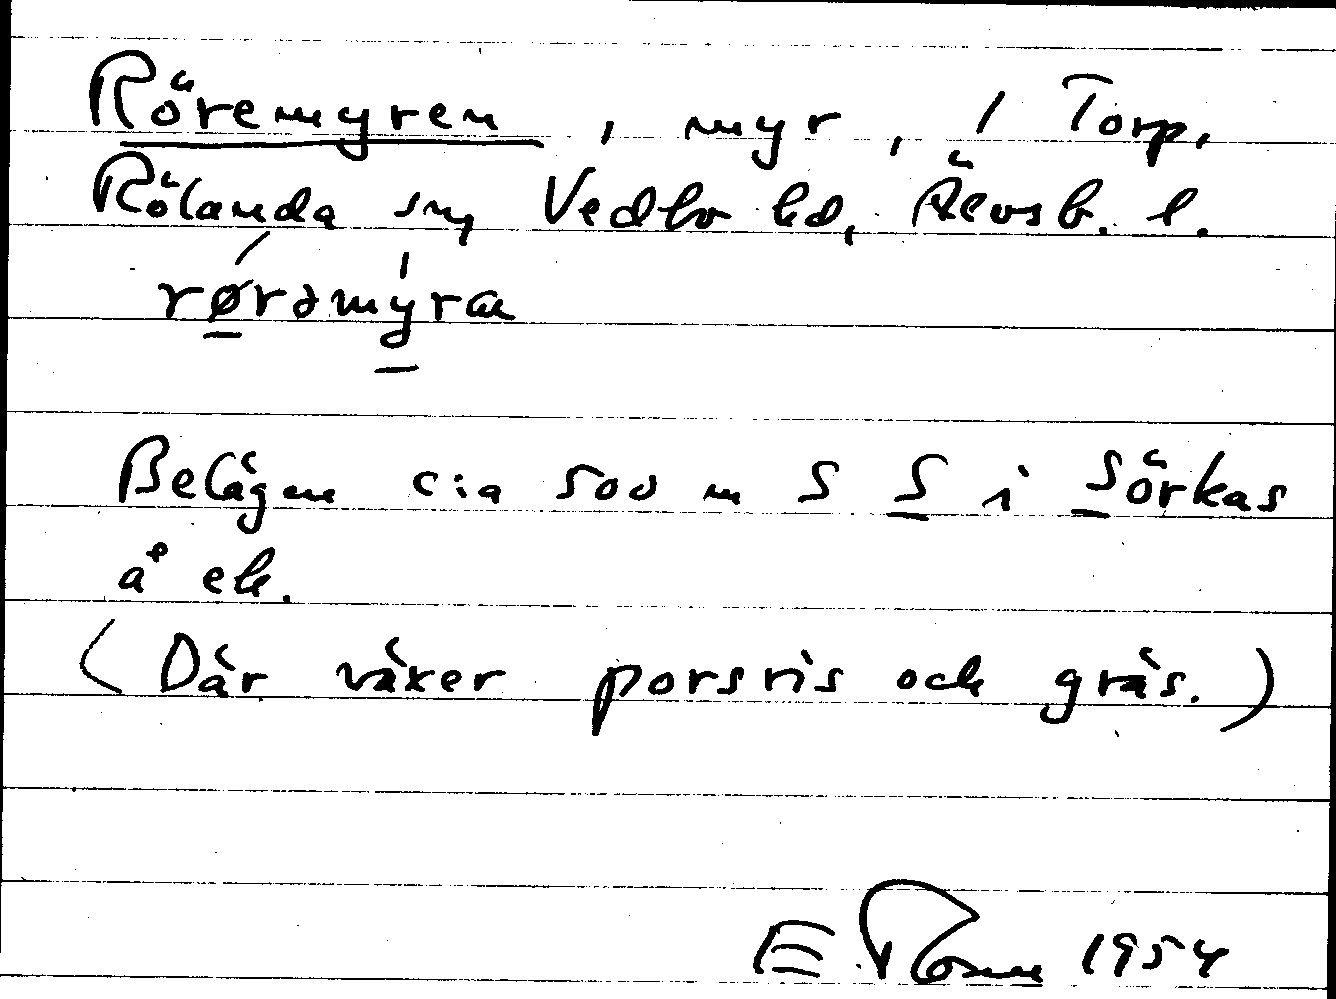 Röremyren, myr, / Torp,
Rölanda sn, Vedbo hd, Älvsb. l.
rørəmýra
Belägen c:a 500 m S S i Sörkas
å ek.
(Där växer porsris och gräs.)
E. 1954